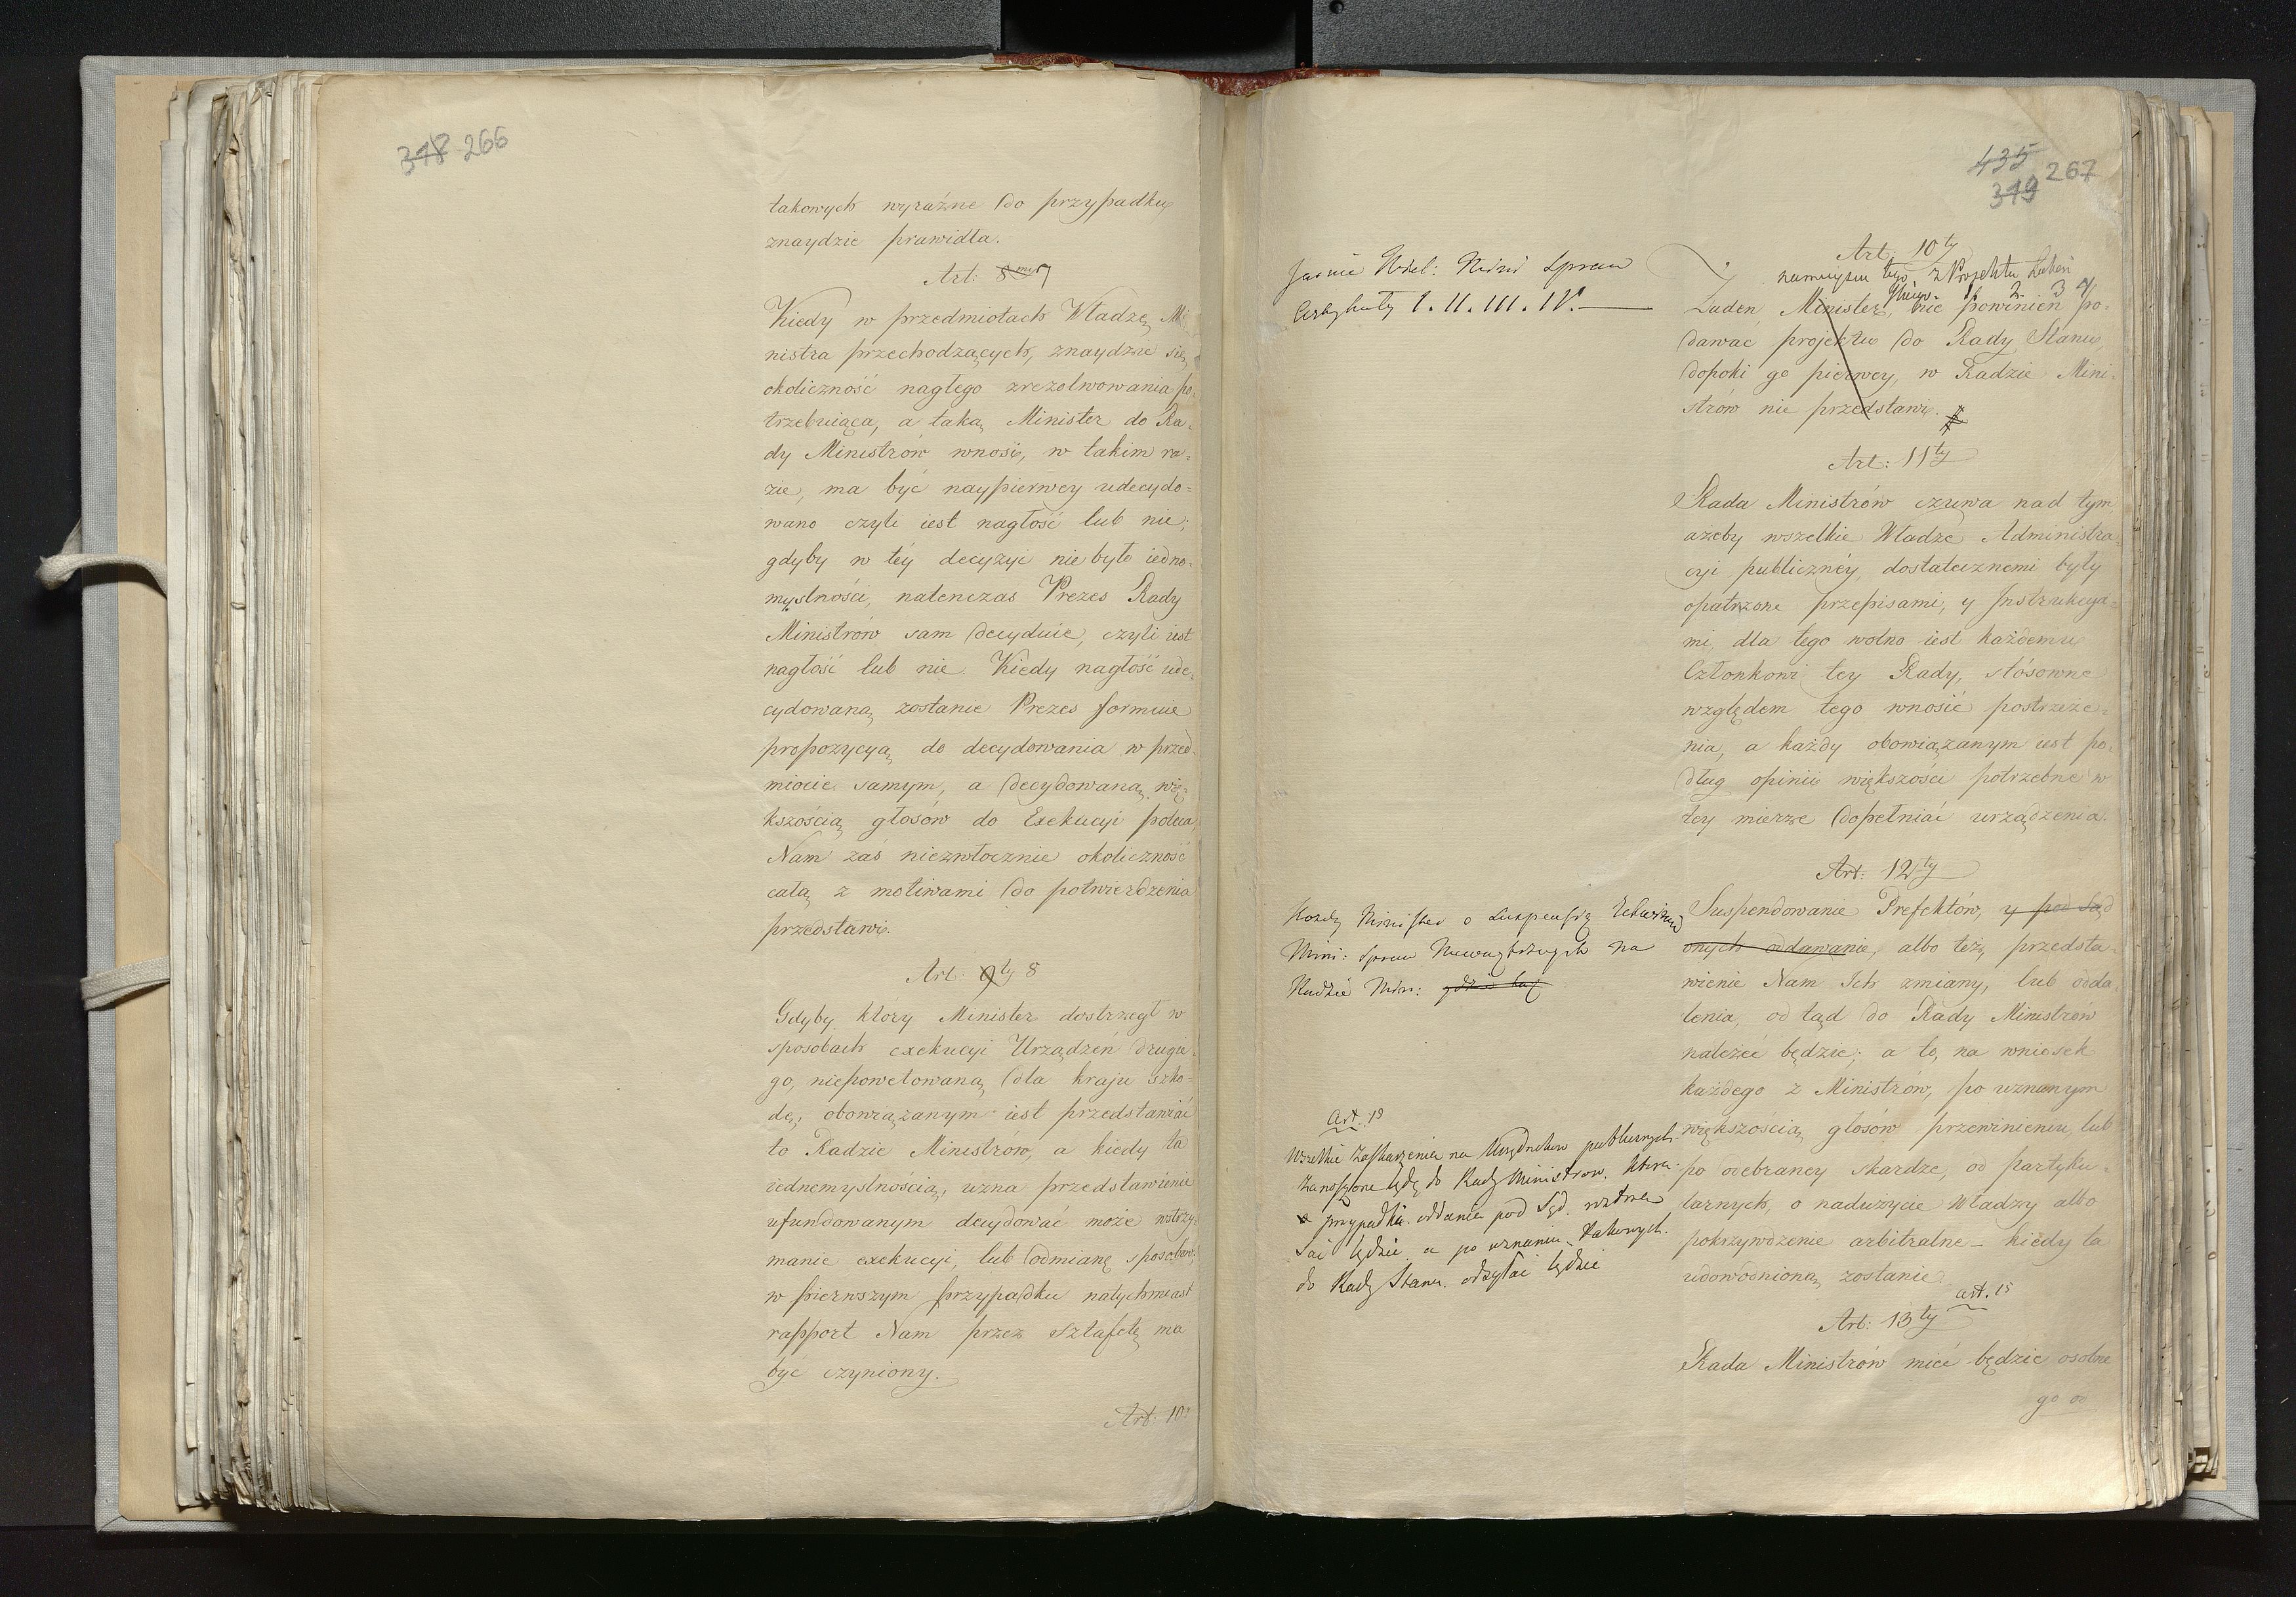 348 266
takowych wyraźne do przypadku
znaydzie prawidła.
Art: 8my 7
Kiedy w przedmiotach Władzę Mi
nistra przechodzących, znaydzie się
okoliczność nagłego zrezolwowania po-
trzebuiąca, a taką Minister do Ra-
dy Ministrów wnosi, w takim ra-
zie, ma być naypierwey udecydo-
wano czyli iest nagłość lub nie;
gdyby w téy decyzyi nie było iedno-
myslności, natenczas Prezes Rady
Ministrów sam decyduie, czyli iest
nagłość lub nie. Kiedy nagłość ude-
cydowaną zostanie Prezes formuie
propozycyą do decydowania w przed-
miocie samym, a decydowaną wię-
kszością głosów do Exekucyi poleca,
Nam zaś niezwłocznie okoliczność
całą z motiwami do potwierdzenia
przedstawi.
Art: 9ty 8
Gdyby który Minister dostrzegł w
sposobach exekucyi Urządzeń drugie-
go, niepowetowaną dla kraju szko-
dę, obowiązanym iest przedstawiać
to Radzie Ministrów, a kiedy ta
iednomyslnością, uzna przedstawienie
ufundowanym decydować może wstrzy-
manie exekucyi, lub odmianę sposobów,
w pierwszym przypadku natychmiast
rapport Nam przez sztafetę ma
być czyniony.
Art: 10
435
349 267
Art: 10ty
namieyscu tego z Projektu
1. 2. 3 4
Żaden Minister, nie powinien po-
dawać projektu do Rady Stanu,
dopóki go pierwey, w Radzie Mini-
strów nie przedstawi.
Art: 11ty
Rada Ministrów czuwa nad tym
ażeby wszelkie Władze Administra-
cyi publicznéy, dostatecznemi były
opatrzone przepisami, y Instrukcya-
mi, dla tego wolno iest każdemu
Członkowi tey Rady, stósowne
względem tego wnosić postrzeże-
nia, a każdy obowiązanym iest po-
dług opinii większości potrzebne w
tey mierze dopełniać urządzenia.
Art: 12ty
Suspendowanie Prefektów, y pod Sąd
onych oddawanie, albo też, przedsta-
wienie Nam Ich zmiany, lub odda-
lenia, od tąd do Rady Ministrów
należeć będzie; a to, na wniosek
każdego z Ministrów, po uznanym
większością głosów przewinieniu, lub
po odebraney skardze, od partyku-
larnych, o nadużycie Władzy albo
pokrzywdzenie arbitralne – kiedy ta
udowodnioną zostanie.
art. 15
Art: 13ty
Rada Ministrów mieć będzie osobne
go
Artykuły I. II. III. IV.
Każdy Minister o Suspensyą
Mini: Spraw Wewnętrznych na
Radzie Min:
Art: 13
Wszelkie Zaskarżenia na Urzędników publicznych
zanoszone będą do Rady Ministrow. która
w przypadku oddania pod Sąd
będzie a po uznaniu takowych.
do Rady Stanu odsyłać będzie